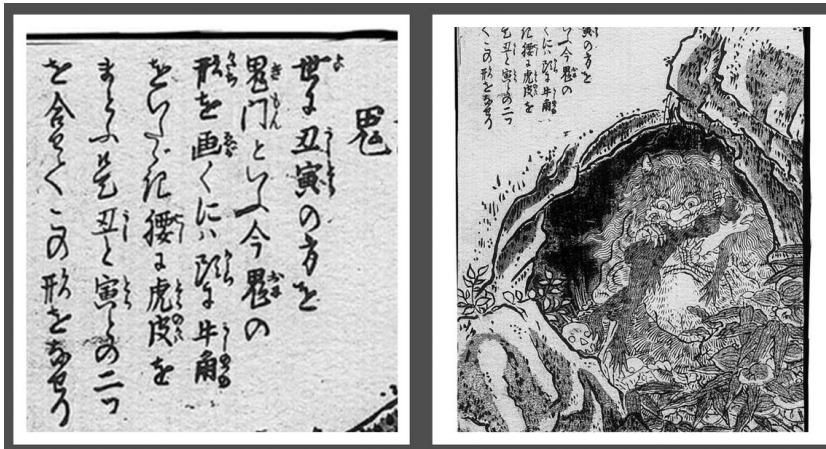 鬼
世に丑寅の方を
鬼門といふ今鬼の
形を画くにハ頭に牛角
をいたゞき腰に虎皮を
まとふ是丑と寅との二つ
を合せてこの形をなせり
寅の方を
いふ今鬼の
くにハ頭に牛角
き腰に虎皮を
丑と寅との二つ
くこの形をなせり